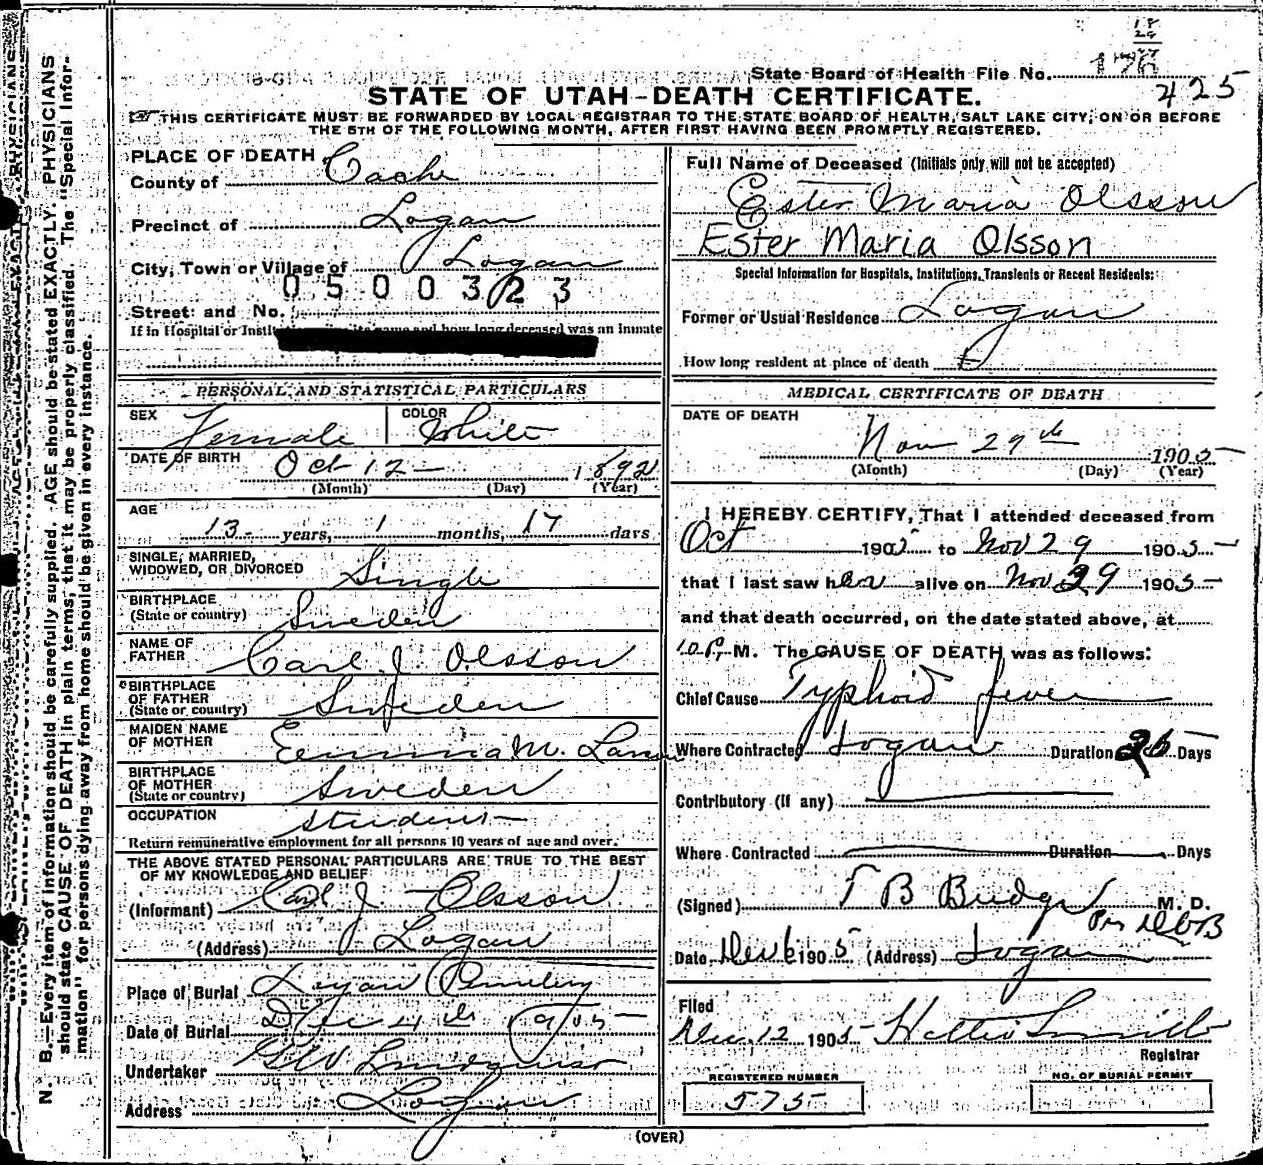 State Board of Health File No. 176
425
STATE OF UTAH-DEATH CERTIFICATE.
THIS CERTIFICATE MUST BE FORWARDED BY LOCAL REGISTRAR TO THE STATE BOARD OF HEALTH, SALT LAKE CITY, ON OR BEFORE
THE 5TH OF THE FOLLOWING MONTH, AFTER FIRST HAVING BEEN PROMPTLY REGISTERED.
PLACE OF DEATH
County of Cache
Precinct of Logan
City, Town or Village of Logan
0500323
Street and No.
If in Hospital or name and how long deceased was an inmate
PERSONAL AND STATISTICAL PARTICULARS
SEX Female COLOR White
DATE OF BIRTH Oct 12 1892
(Month) (Day) (Year)
AGE
13 years, 1 months, 17 days
SINGLE, MARRIED,
WIDOWED, OR DIVORCED Single
BIRTHPLACE
(State or country) Sweden
NAME OF
FATHER Carl J Olsson
BIRTHPLACE
OF FATHER
(State or country) Sweden
MAIDEN NAME
OF MOTHER Emma M.
BIRTHPLACE
OF MOTHER
(State or country) Sweden
OCCUPATION Student
Return remunerative employment for all persons 10 years of age and over.
THE ABOVE STATED PERSONAL PARTICULARS ARE TRUE TO THE BEST
OF MY KNOWLEDGE AND BELIEF
(Informant) Carl J. Olsson
(Address) Logan
Place of Burial Logan Cemetery
Date of Burial Dec 4th 1905
Undertaker
Address Logan
Full Name of Deceased (Initials only will not be accepted)
Ester Maria Olsson
Ester Maria Olsson
Special Information for Hospitals, Institutions, Transients or Recent Residents:
Former or Usual Residence Logan
How long resident at place of death
MEDICAL CERTIFICATE OF DEATH
DATE OF DEATH
Nov 29th 1905
(Month) (Day) (Year)
I HEREBY CERTIFY, That I attended deceased from
Oct 1905 to Nov 29 1905
that I last saw her alive on Nov 29 1905
and that death occurred, on the date stated above, at
10 P. M. The CAUSE OF DEATH was as follows:
Chief Cause Typhoid fever
Where Contracted Logan Duration Days
Contributory (if any)
Where Contracted Duration Days
(Signed) T B Budge M. D.
Date Dec 6 1905 (Address) Logan
Filed
Dec. 12 1905 Hattie Smith
Registrar
REGISTERED NUMBER
575
NO. OF BURIAL PERMIT
(OVER)
N. B.—Every item of information should be carefully supplied. AGE should be stated EXACTLY. PHYSICIANS
should state CAUSE OF DEATH in plain terms, that it may be properly classified. The "Special Infor-
mation" for persons dying away from home should be given in every instance.